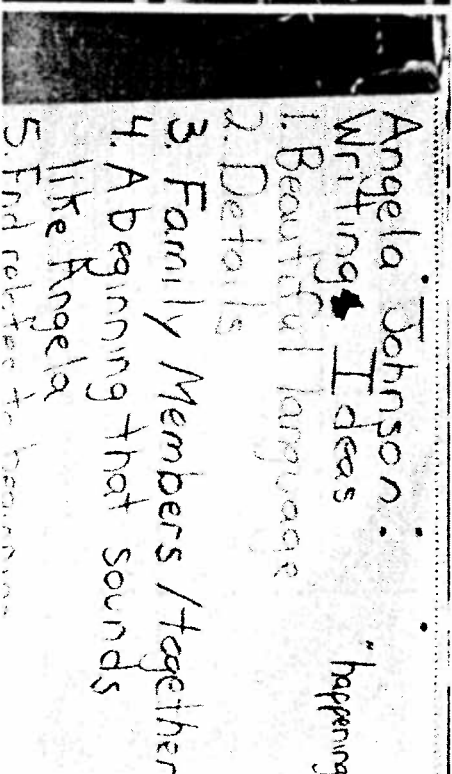 Angela Johnson:
Writing Ideas
"happening
1. Beautiful language
2. Details
3. Family Members / together
4. A beginning that sounds
like Angela
5. End relates to beginning